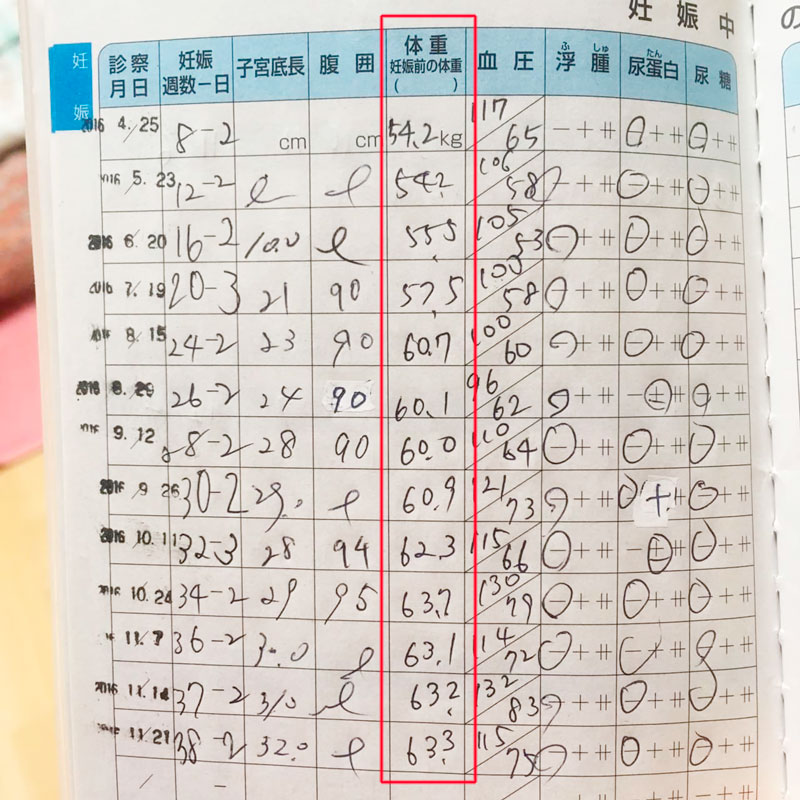 妊娠中
の
妊娠
診察月日 妊娠週数-日 子宮底長 腹囲 体重 妊娠前の体重( ) 血圧 浮腫 尿蛋白 尿糖
ふ しゅ たん
2016 4.25 8-2 cm cm 54.2kg 117/65 - + ⧺ - + ⧺ - + ⧺
2016 5.23 12-2 54.2 106/58 - + ⧺ - + ⧺ - + ⧺
2016 6.20 16-2 10.0 55.5 105/53 - + ⧺ - + ⧺ - + ⧺
2016 7.19 20-3 21 90 57.5 100/58 - + ⧺ - + ⧺ - + ⧺
8.15 24-2 23 90 60.7 100/60 - + ⧺ - + ⧺ - + ⧺
2016 8.29 26-2 24 90 60.1 96/62 - + ⧺ - ± ⧺ - + ⧺
9.12 28-2 28 90 60.0 110/64 - + ⧺ - + ⧺ - + ⧺
2016 9.26 30-2 29.0 60.9 121/73 - + ⧺ - + ⧺ - + ⧺
2016 10.11 32-3 28 94 62.3 115/66 - + ⧺ - ± ⧺ - + ⧺
2016 10.24 34-2 29 95 63.7 130/79 - + ⧺ - + ⧺ - + ⧺
11.7 36-2 30.0 63.1 114/72 - + ⧺ - + ⧺ - + ⧺
2016 11.14 37-2 31.0 63.2 132/83 - + ⧺ - + ⧺ - + ⧺
11.21 38-2 32.0 63.3 115/75 - + ⧺ - + ⧺ - + ⧺